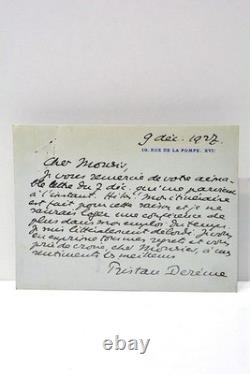 9 déc. 1927
10, RUE DE LA POMPE. XVIe
Cher Monsieur,
Je vous remercie de votre aima-
ble lettre du 7 déc. qui me parvient
à l'instant. Hélas! Mon itinéraire
est fait pour cette saison et je ne
saurais loger une conférence de
plus dans mon emploi du temps.
Je suis littéralement débordé. Je vous
en exprime tous mes regrets et vous
prie de croire, cher Monsieur, à mes
sentiments les meilleurs
Tristan Derème